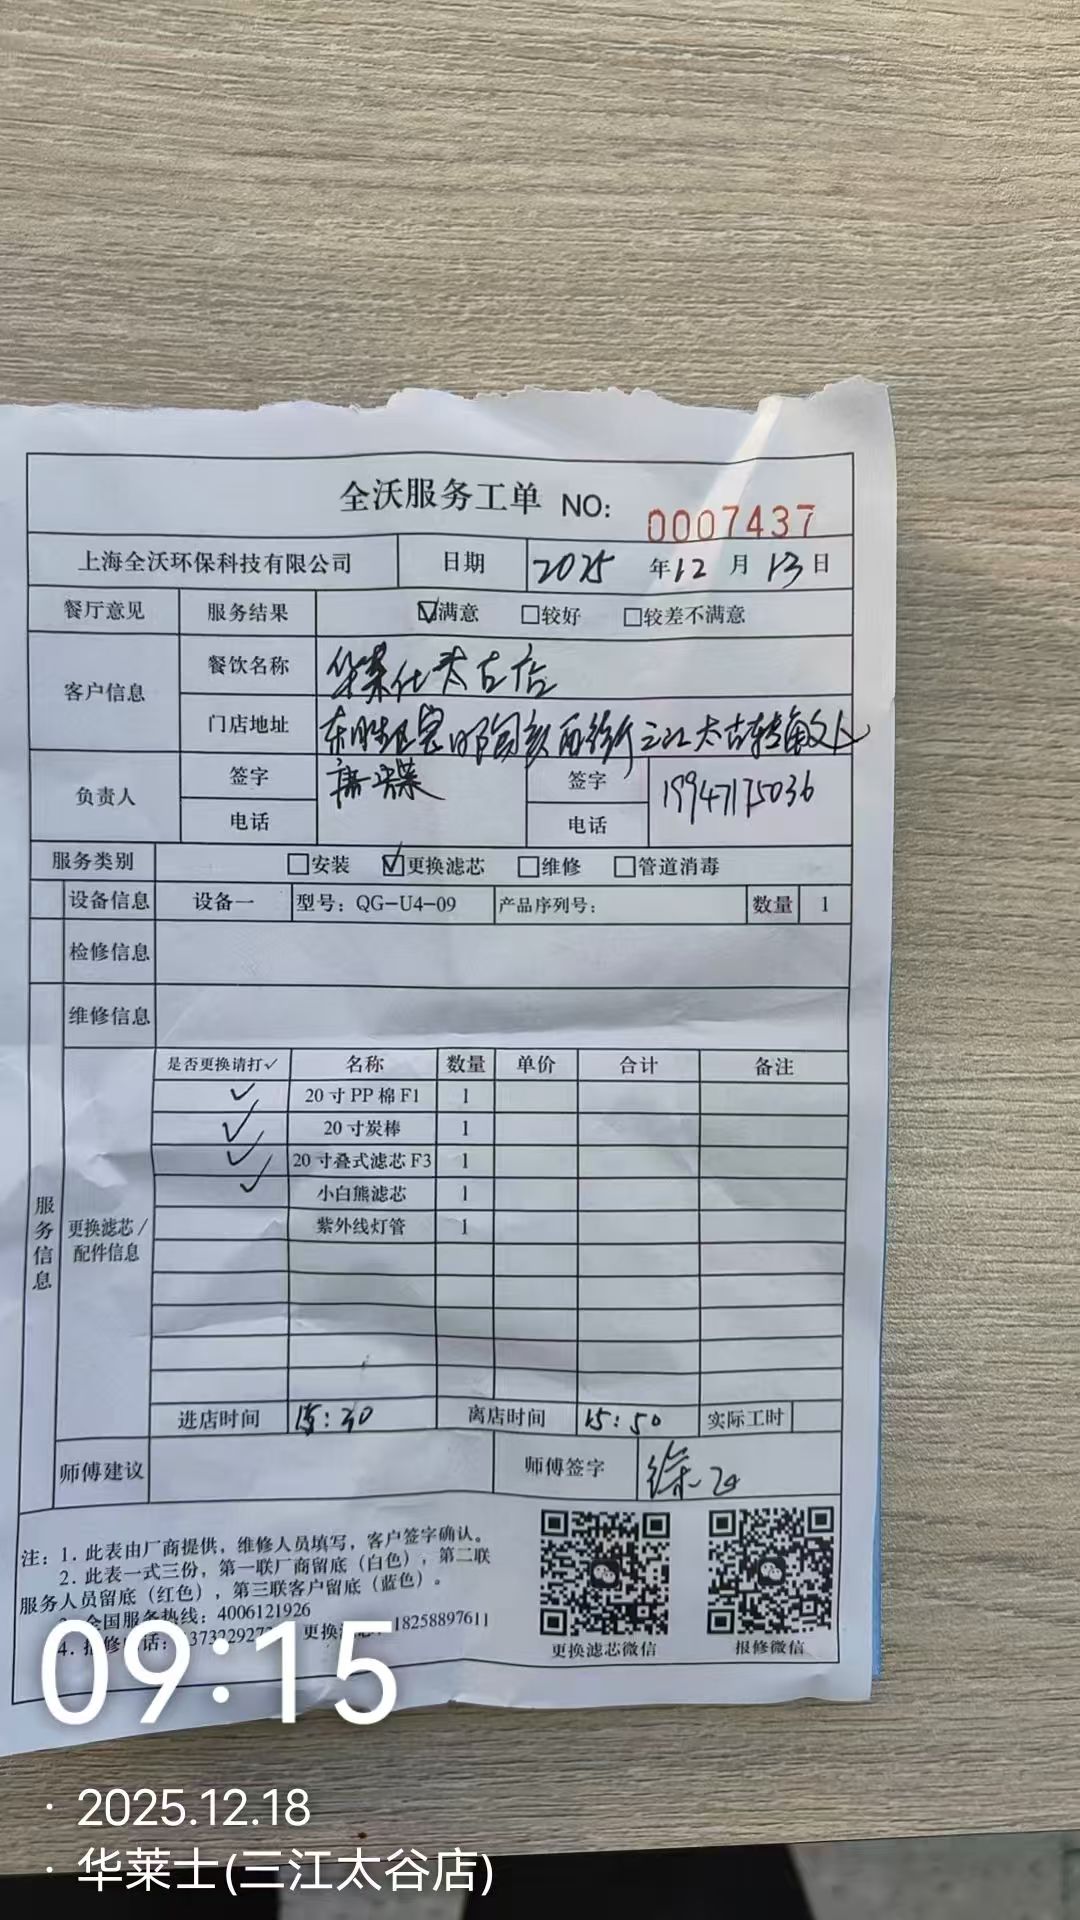 全沃服务工单 NO: 0007437
上海全沃环保科技有限公司 日期 2025 年 12 月 13 日
餐厅意见 服务结果 ☑满意 □较好 □较差不满意
客户信息 餐饮名称 华莱仕太古店
门店地址 东胜区 西街 三江太古转角
负责人 签字 签字 19947175036
电话 电话
服务类别 □安装 ☑更换滤芯 □维修 □管道消毒
设备信息 设备一 型号：QG-U4-09 产品序列号： 数量 1
检修信息
维修信息
服务信息
更换滤芯/配件信息
是否更换请打✓ 名称 数量 单价 合计 备注
✓ 20寸PP棉F1 1
✓ 20寸炭棒 1
✓ 20寸叠式滤芯F3 1
✓ 小白熊滤芯 1
紫外线灯管 1
进店时间 15:30 离店时间 15:50 实际工时
师傅建议 师傅签字 徐
注：1. 此表由厂商提供，维修人员填写，客户签字确认。
2. 此表一式三份，第一联厂商留底（白色），第二联
服务人员留底（红色），第三联客户留底（蓝色）。
全国服务热线：4006121926
4. 报修 话： 更换 18258897611
更换滤芯微信 报修微信
09:15
· 2025.12.18
· 华莱士(三江太谷店)